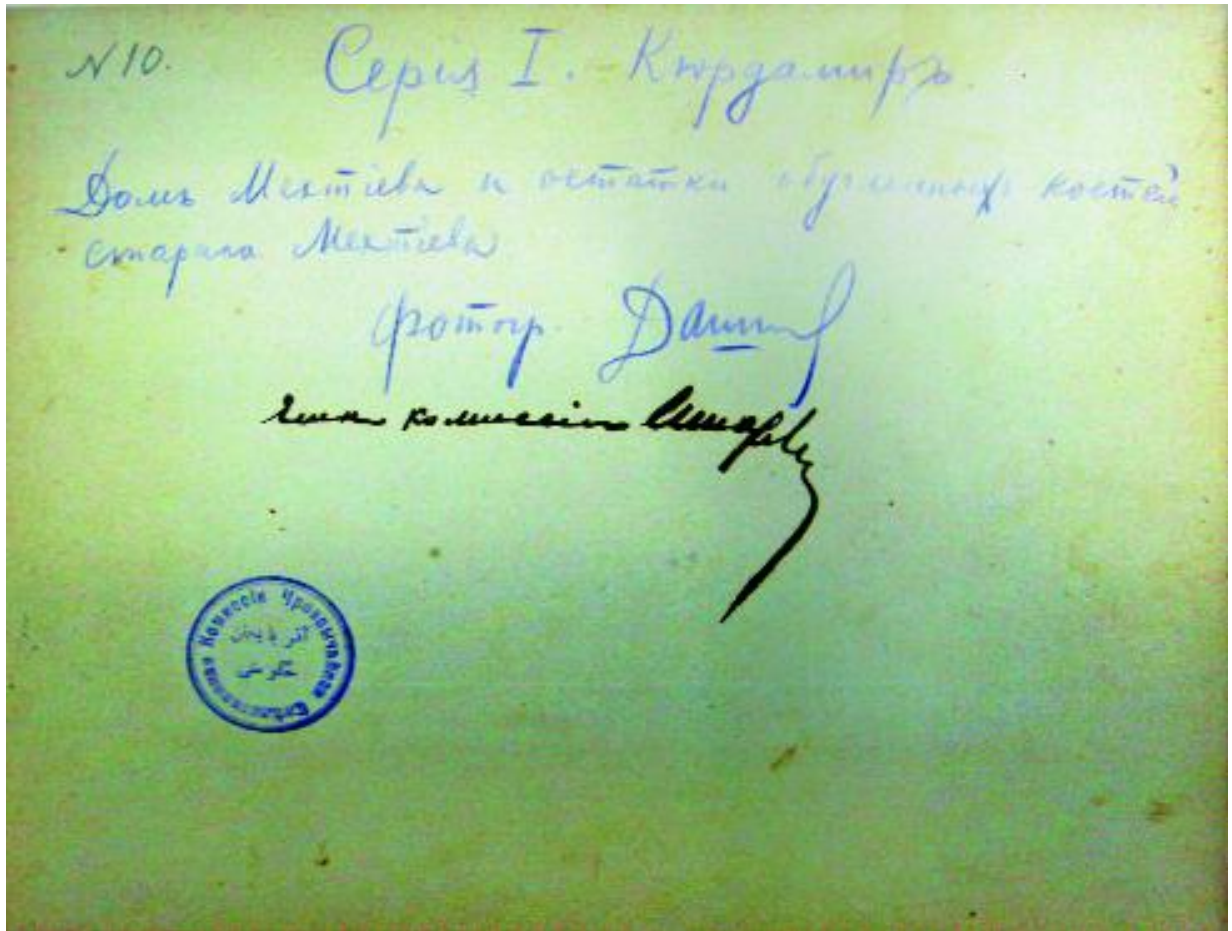 N 10.
Серія I. - Кюрдамиръ
Домъ Мехтіева и остатки обугленныхъ костей
стараго Мехтіева
фотогр.
Членъ комиссіи
Чрезвычайная Слѣдственная Комиссія